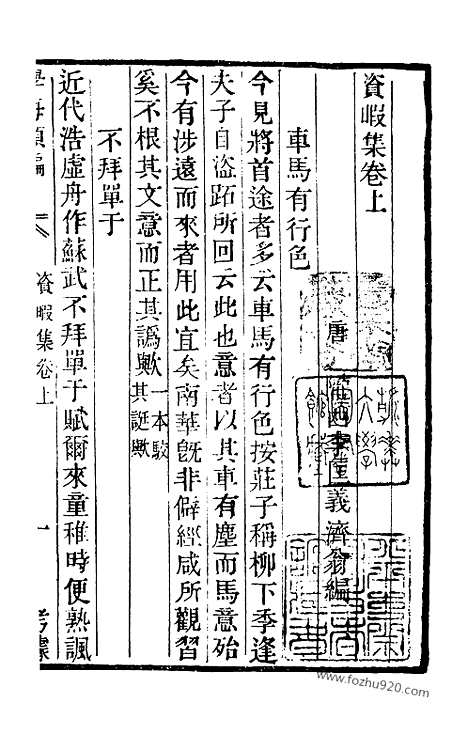 資暇集卷上
唐 隴西李匡義濟翁編
車馬有行色
今見將首途者多云車馬有行色按莊子稱柳下季逢
夫子自盜跖所回云此也意者以其車有塵而馬意殆
今有涉遠而來者用此宜矣南華旣非僻經咸所觀習
奚不根其文意而正其譌歟一本駮其誕歟
不拜單于
近代浩虛舟作蘇武不拜單于賦爾來童稚時便熟諷
學海類編
資暇集卷上
一
www.fozhu920.com